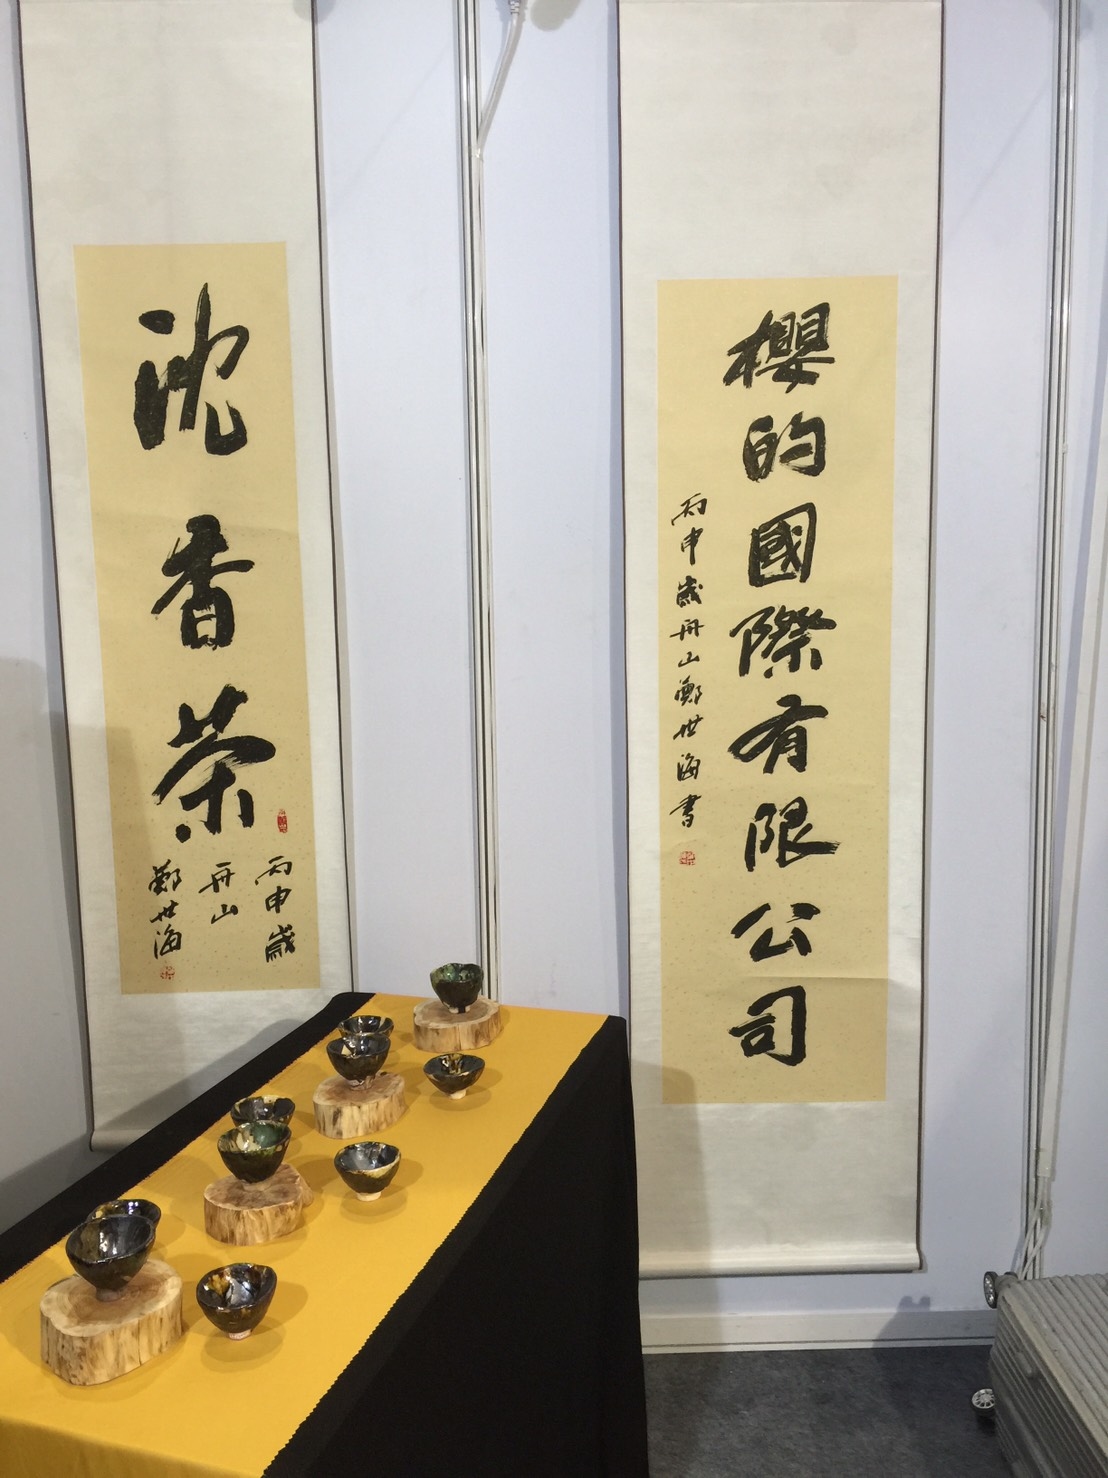 櫻的國際有限公司
丙申歲舟山鄭世海書
沈香茶
丙申歲
舟山
鄭世海